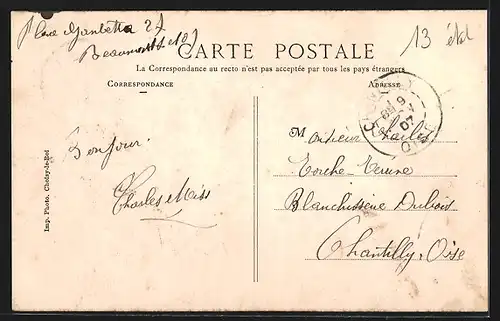 Place Gambetta 27
Beaumont s/o
13
CARTE POSTALE
La Correspondance au recto n'est pas acceptée par tous les pays étrangers
CORRESPONDANCE
ADRESSE
Monsieur Charles
Blanchisserie Dubois
Chantilly. Oise
Bonjour.
Charles Miss
Imp. Photo. Choisy-le-Roi